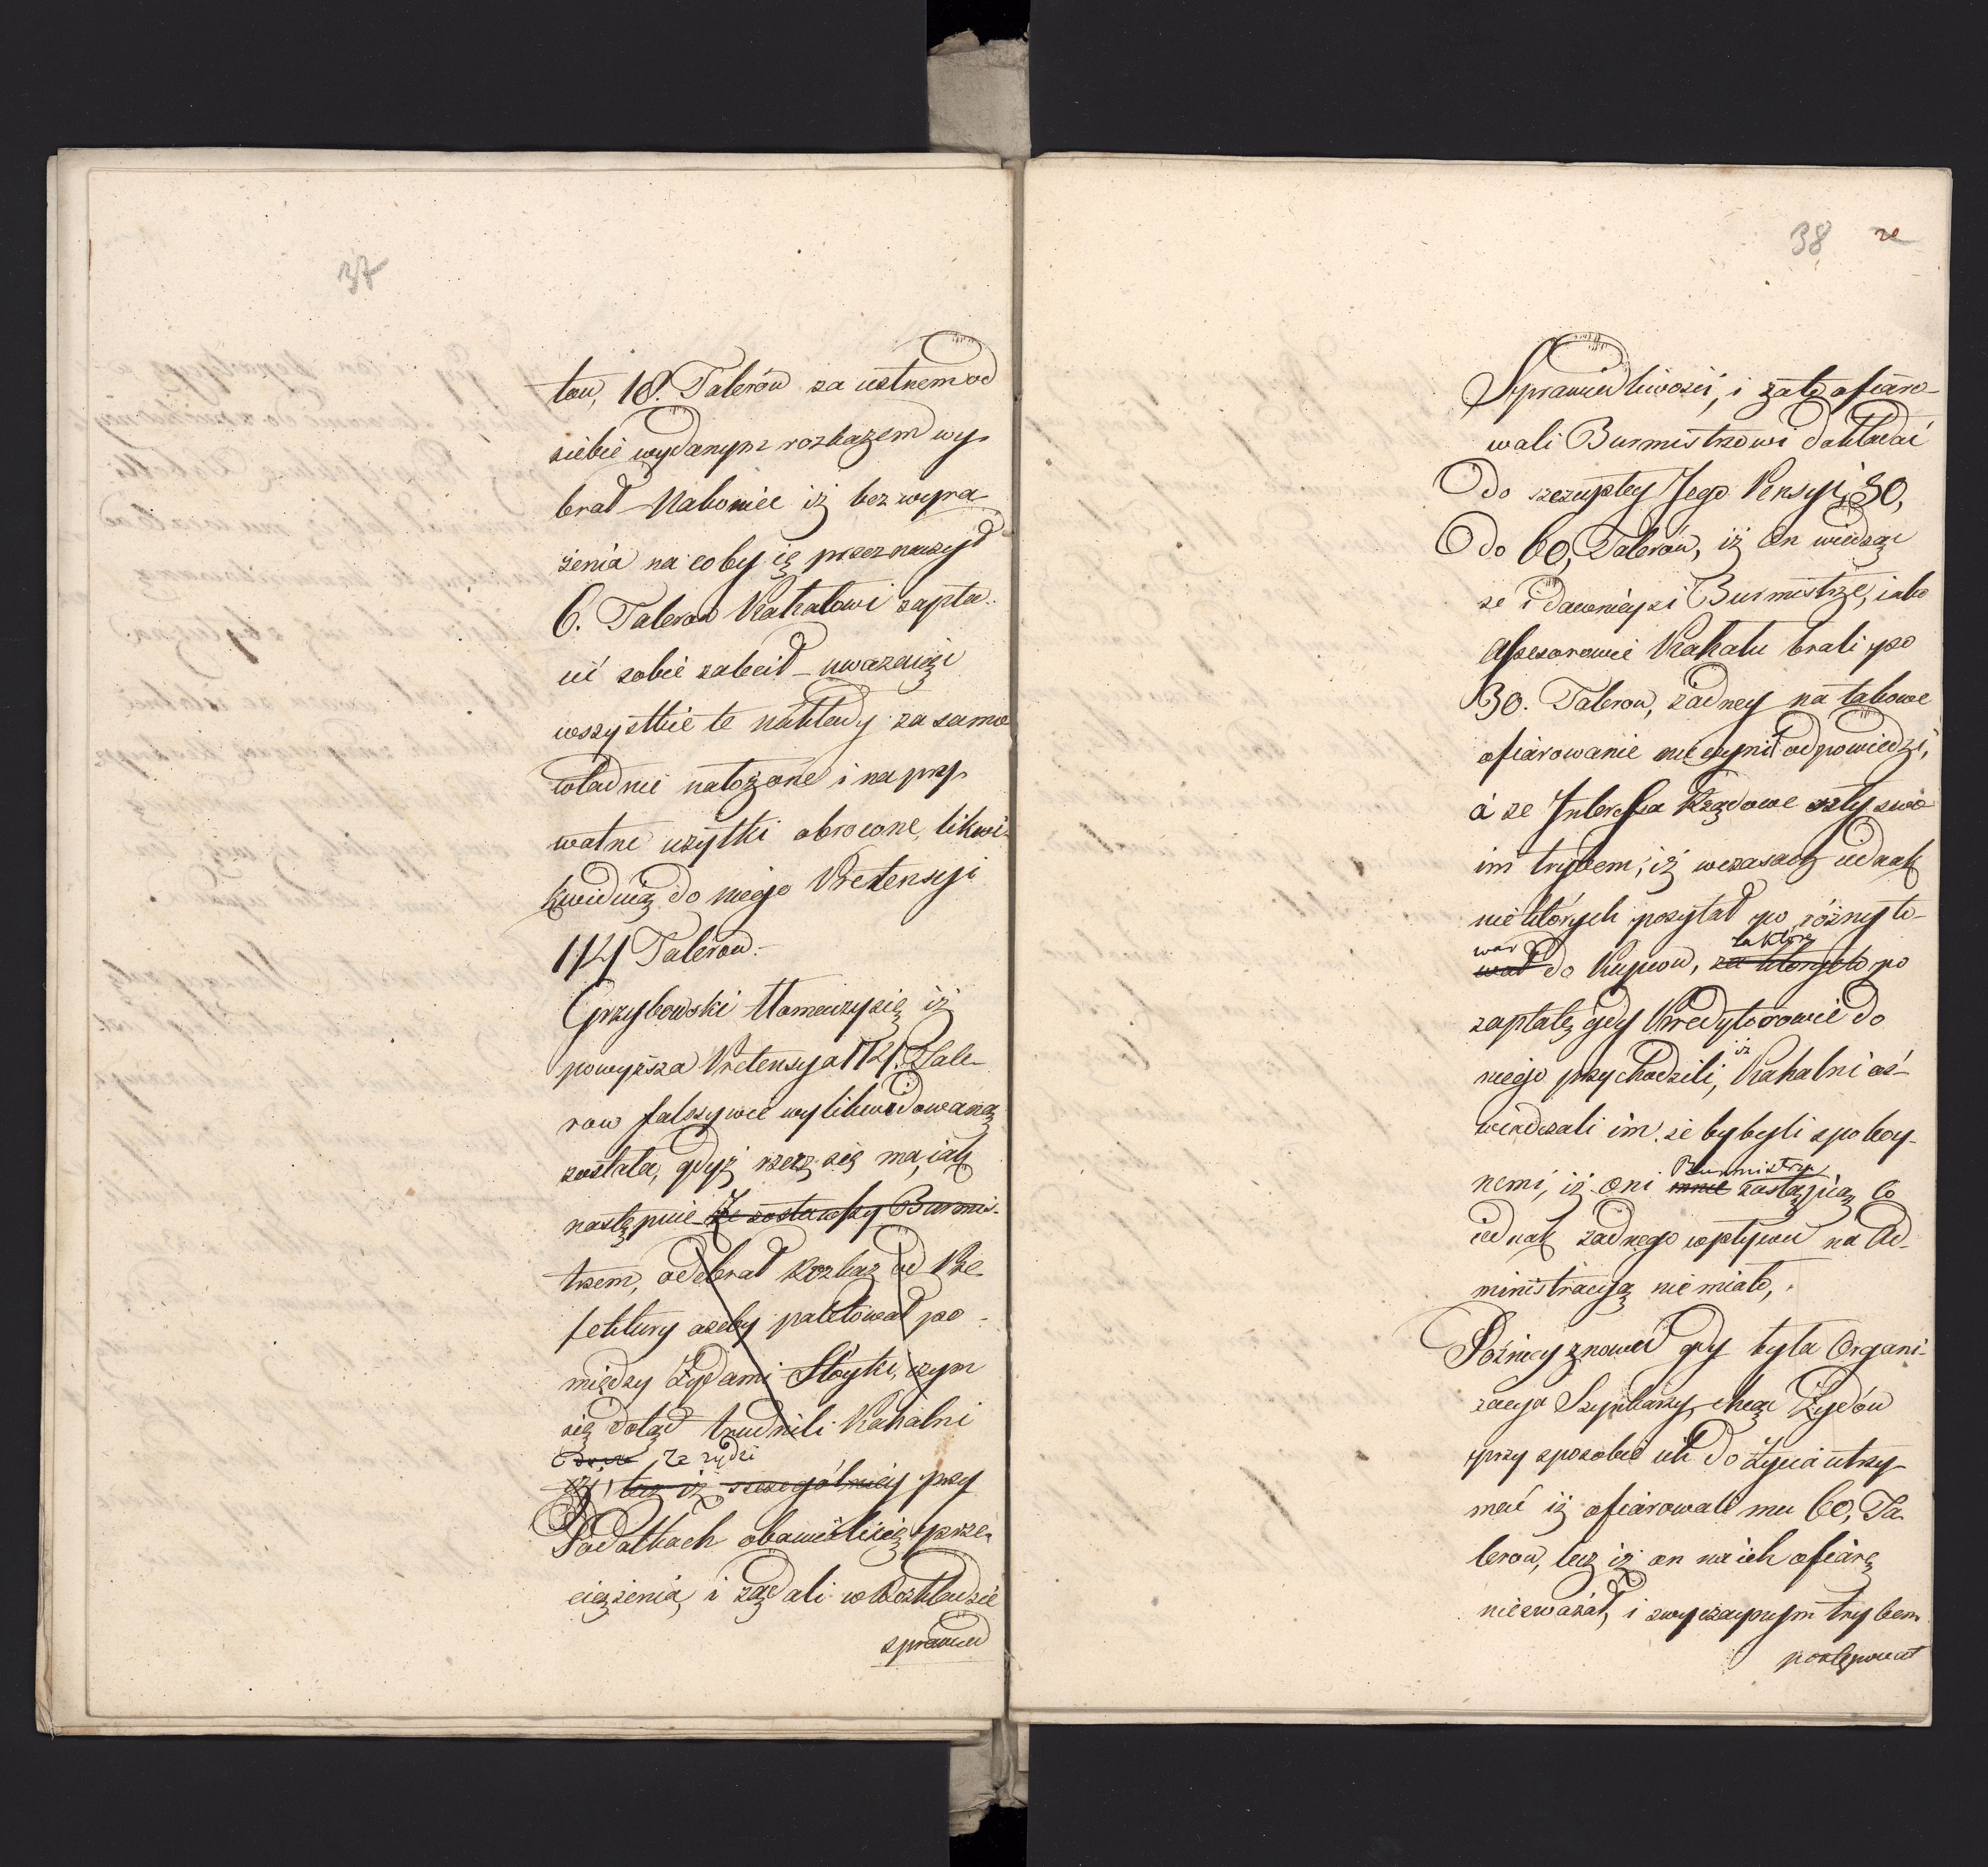 37
tow, 18. Talerów za ustnem od
siebie wydanym rozkazem wy-
brał Nakoniec iż bez wyra
żenia na coby ię przeznaczył
6. Talerow Kahałowi zapła-
cić sobie zalecił – uważaiąc
wszystkie te nakłady za samo
władnie nałożone i na pry-
watne użytki obrocone, likwi-
kwiduią do niego Pretensyi
Talerow.
Grzybowski tłomaczy się iż
powyższa Pretensya Tale-
row fałszywie wylikwidowaną
została, gdyż rzecz się ma, iak
następuie Ze zostawszy Burmis-
trzem, odebrał Rozkaz od Pre-
fektury ażeby paletował po-
między Żydami Stoyki, czym
się dotąd trudnili Kahalni
Że żydzi
lecz iż szczególniey przy
Podatkach obawiali się prze-
ciążenia, i żądali w Rozkładzie
sprawied
38
Sprawiedliwości, i zato ofiaro-
wali Burmistrzowi dokładać
do szczupłey Jego Pensyi, 30,
do 60, Talerów, iż On wiedząc
że i dawnieysi Burmistrze, iako
Assesorowie Kahału brali po
30. Talerow, żadney na takowe
ofiarowanie nie czynił odpowiedzi,
á że Interessa Rządowe szły swo
im trybem, iż w czasach iednak
niektórych posyłał po różny to-
war za które
wał do Kupcow, za których po
zapłatę gdy Kredytorowie do
iż
niego przychodzili, Kahalni oś-
wiadczali im że by byli spokoy-
Burmistrza
nemi, iż oni mnie zastąpią co
iednak żadnego wpływu na Ad-
ministracyą nie miało,
Poźniey znowu gdy była Organi-
zacya Szynkarzy, chcąc Żydów
przy sposobie ich do życia utrzy-
mać iż ofiarowali mu 60, Ta-
lerow, lecz iż on na ich ofiarę
nie zważał, i zwyczaynym trybem
postępował